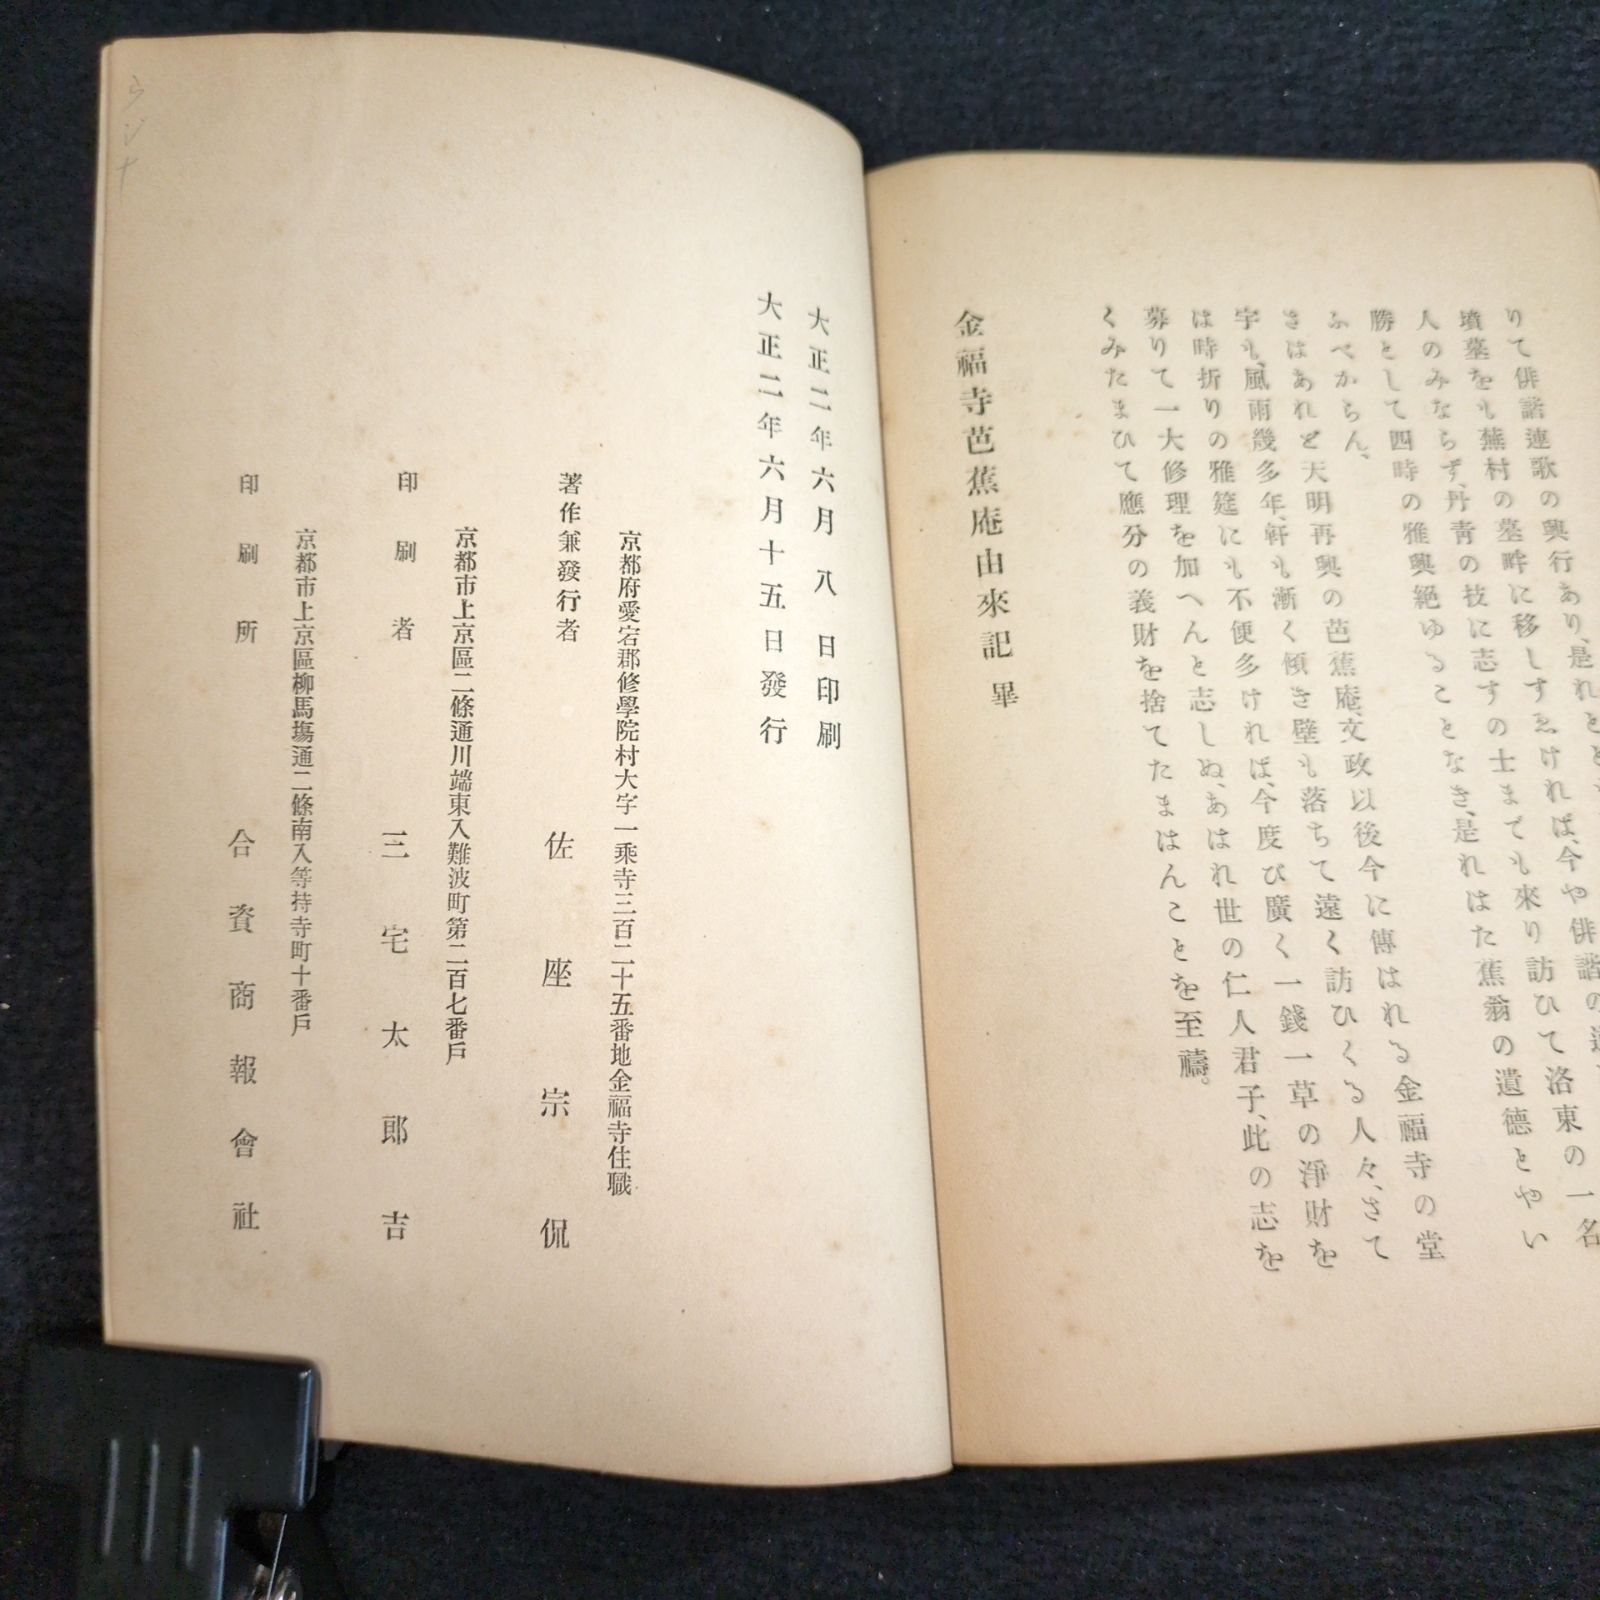 りて俳諧連歌の興行あり、是れと
墳墓をも蕪村の墓畔に移しすゑければ、今や俳諧の
人のみならず、丹青の技に志すの士までも來り訪ひて洛東の一名
勝として四時の雅興絕ゆることなき、是れはた蕉翁の遺德とやい
ふべからん、
さはあれど天明再興の芭蕉庵、文政以後今に傳はれる金福寺の堂
宇も、風雨幾多年、軒も漸く傾き壁も落ちて遠く訪ひくる人々、さて
は時折りの雅筵にも不便多ければ、今度び廣く一錢一草の淨財を
募りて一大修理を加へんと志しぬ、あはれ世の仁人君子、此の志を
くみたまひて應分の義財を捨てたまはんことを至禱。
金福寺芭蕉庵由來記 畢
大正二年六月八日印刷
大正二年六月十五日發行
京都府愛宕郡修學院村大字一乘寺三百二十五番地金福寺住職
著作兼發行者 佐座宗侃
京都市上京區二條通川端東入難波町第二百七番戶
印刷者 三宅太郎吉
京都市上京區柳馬塲通二條南入等持寺町十番戶
印刷所 合資商報會社